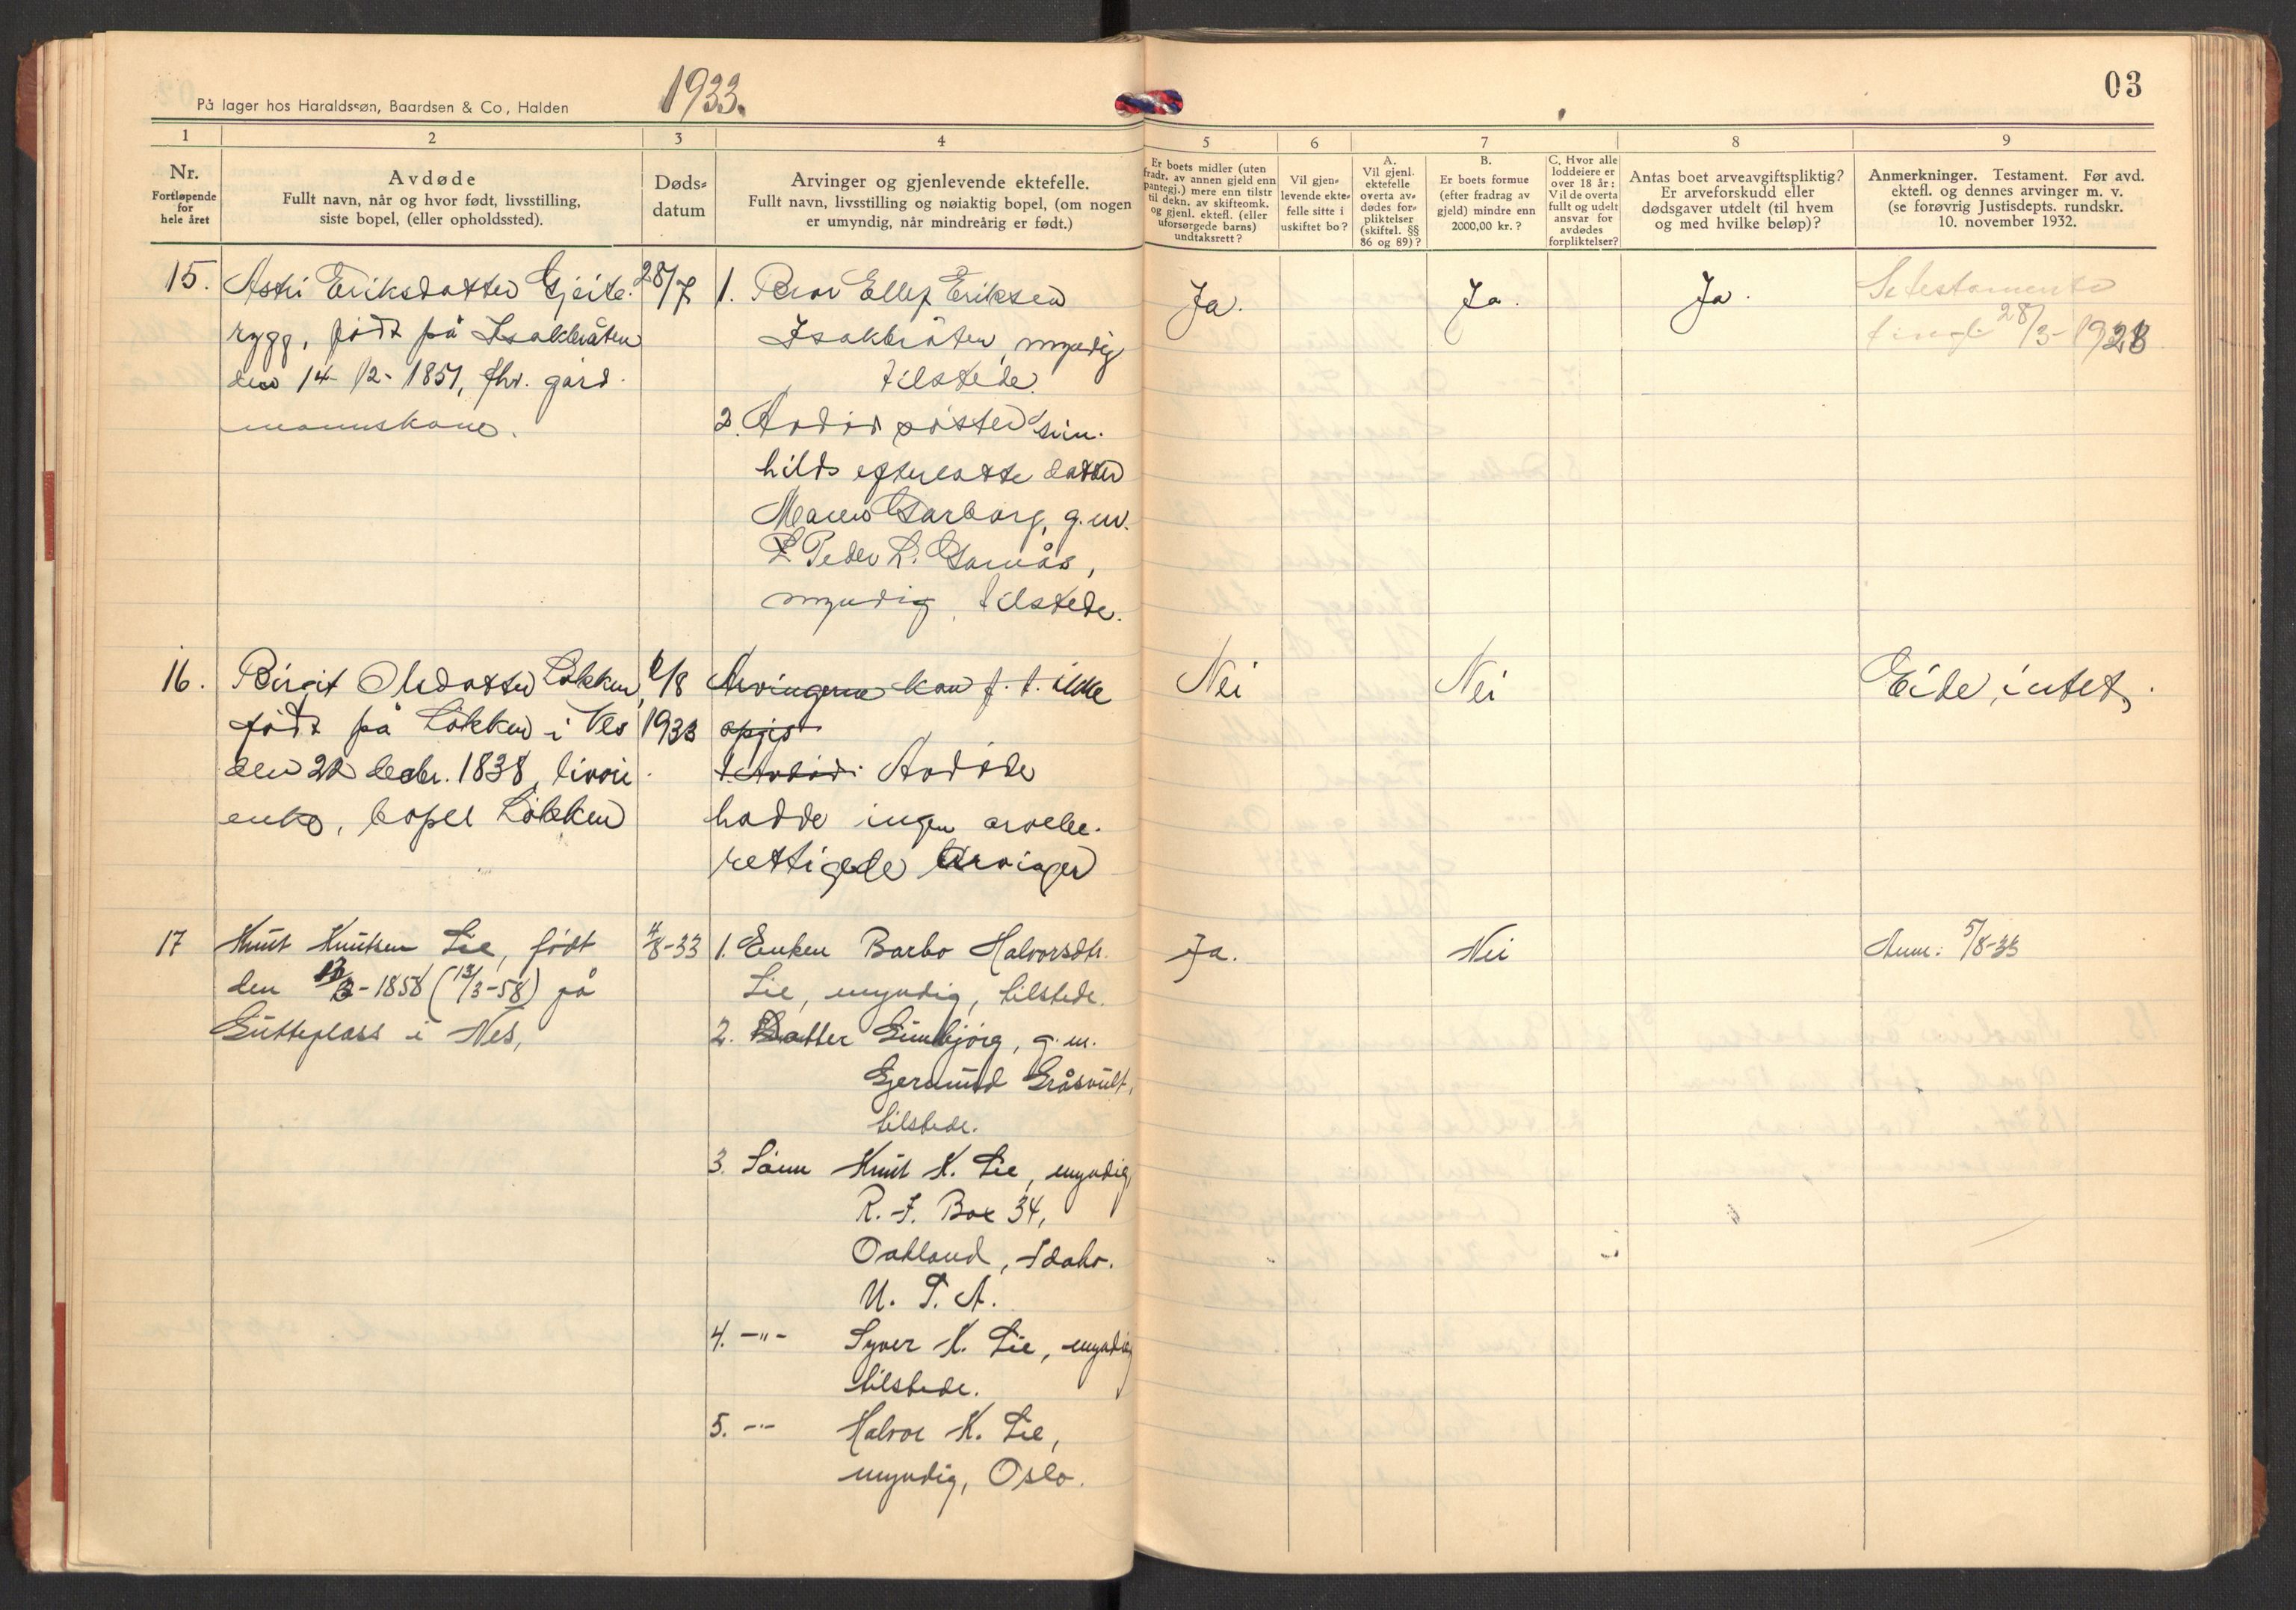 På lager hos Haraldssøn, Baardsen & Co, Halden
1933.
03
1
2
3
4
5
6
7
8
9
Nr.
Fortløpende
for
hele året
Avdøde
Fullt navn, når og hvor født, livsstilling,
siste bopel, (eller opholdssted).
Døds-
datum
Arvinger og gjenlevende ektefelle.
Fullt navn, livsstilling og nøiaktig bopel, (om nogen
er umyndig, når mindreårig er født.)
Er boets midler (uten
fradr. av annen gjeld enn
pantegj.) mere enn tilstr
til dekn. av skifteomk.
og gjenl. ektefl. (eller
uforsørgede barns)
undtaksrett?
Vil gjen-
levende ekte-
felle sitte i
uskiftet bo?
A.
Vil gjenl.
ektefelle
overta av-
dødes for-
pliktelser
(skiftel. §§
86 og 89)?
B.
Er boets formue
(efter fradrag av
gjeld) mindre enn
2000,00 kr.?
C. Hvor alle
loddeiere er
over 18 år:
Vil de overta
fullt og udelt
ansvar for
avdødes
forpliktelser?
Antas boet arveavgiftspliktig?
Er arveforskudd eller
dødsgaver utdelt (til hvem
og med hvilke beløp)?
Anmerkninger. Testament. Før avd.
ektefl. og dennes arvinger m. v.
(se forøvrig Justisdepts. rundskr.
10. november 1932.
15.
Astri Eriksdatter Gjeite-
rygg, født på Isakbråten
den 14-12-1851, fhv. gård-
mannskone.
28/7
1. Bror Ellef Eriksen
Isakbråten, myndig
tilstede.
2. Avdød søster Gun-
hilds efterlatte datter
Garborg, g.m.
Peder L. Garnås,
myndig, tilstede.
Ja.
Ja.
Ja.
Se testamente
tingl. 28/3-1928
16.
Birgit Olsdatter Løkken,
født på Løkken i Nes
den decbr. 1838,
enke, bopel Løkken
/8
1933
Arvingerne kan f. t. ikke
opgis
1. Avdød: Avdøde
hadde ingen arvebe-
rettigede arvinger
Nei
Nei
Eide, intet.
17
Knut Knutsen Lie, født
den -1858 (13/3-58) på
Gutteplass i Nes,
4/8-33
1. Enken Barbo Halvorsdtr.
Lie, myndig, tilstede.
2. Datter Gunbjörg, g.m.
Gjermund Gråsvult,
tilstede.
3. Sønn Knut K. Lie, myndig,
R. F. Box 34,
Oakland, Idaho.
U. S. A.
4. -"- Syver K. Lie, myndig
tilstede.
5. -"- Halvor K. Lie,
myndig, Oslo.
Ja.
Nei
Anm: 5/8-33